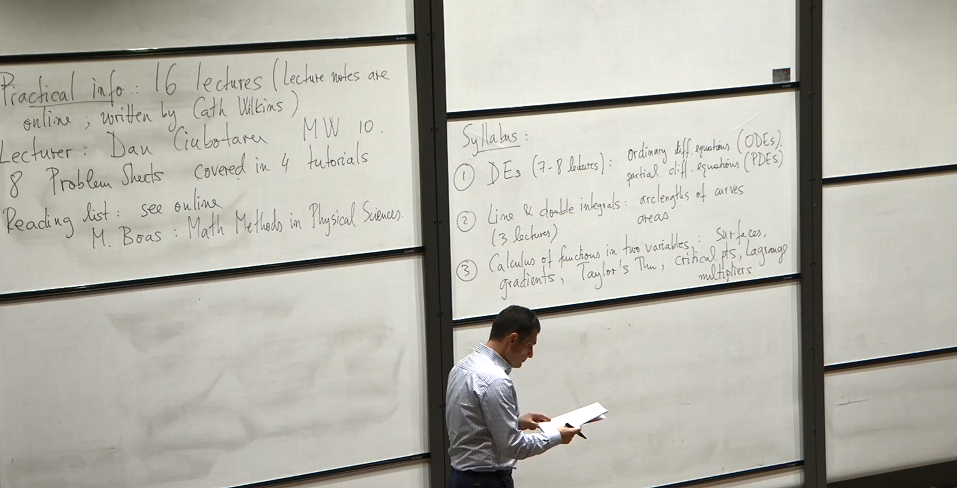 Practical info.: 16 lectures (lecture notes are
online; written by Cath Wilkins)
Lecturer: Dan Ciubotaru MW 10.
8 Problem Sheets covered in 4 tutorials
Reading list: see online
M. Boas: Math Methods in Physical Sciences.
Syllabus:
① DEs (7-8 lectures): ordinary diff. equations (ODEs).
partial diff. equations (PDEs)
② Line & double integrals: arclengths of curves
(3 lectures) areas
③ Calculus of functions in two variables,: surfaces,
gradients, Taylor's Thm, critical pts, Lagrange
multipliers